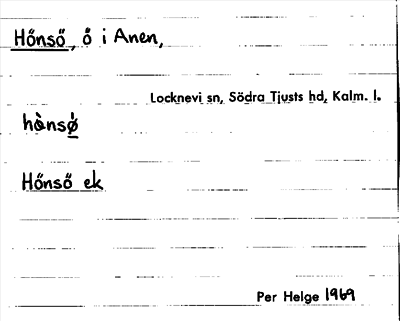 Hönsö, ö i Anen,
Locknevi sn, Södra Tjusts hd, Kalm. l.
hö̀nsø̀
Hönsö ek
Per Helge 1969